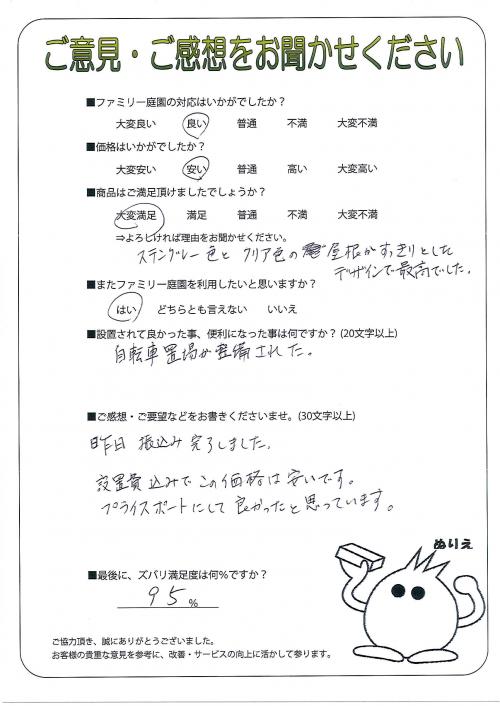 ご意見・ご感想をお聞かせください
■ファミリー庭園の対応はいかがでしたか？
大変良い 良い 普通 不満 大変不満
■価格はいかがでしたか？
大変安い 安い 普通 高い 大変高い
■商品はご満足頂けましたでしょうか？
大変満足 満足 普通 不満 大変不満
⇒よろしければ理由をお聞かせください。
ステングレー色とクリア色の屋根がすっきりとした
デザインで最高でした。
■またファミリー庭園を利用したいと思いますか？
はい どちらとも言えない いいえ
■設置されて良かった事、便利になった事は何ですか？(20文字以上)
自転車置場が整備された。
■ご感想・ご要望などをお書きくださいませ。(30文字以上)
昨日 振込み完了しました。
設置費込みでこの価格は安いです。
プライスポートにして良かったと思っています。
ぬりえ
■最後に、ズバリ満足度は何%ですか？
95%
ご協力頂き、誠にありがとうございました。
お客様の貴重な意見を参考に、改善・サービスの向上に活かして参ります。